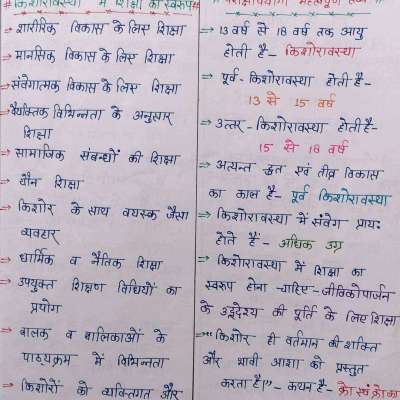 #किशोरावस्था में शिक्षा का स्वरूप#
⇒ शारीरिक विकास के लिए शिक्षा
⇒ मानसिक विकास के लिए शिक्षा
⇒ संवेगात्मक विकास के लिए शिक्षा
⇒ वैयक्तिक विभिन्नता के अनुसार
शिक्षा
⇒ सामाजिक संबन्धों की शिक्षा
⇒ यौन शिक्षा
⇒ किशोर के साथ वयस्क जैसा
व्यवहार
⇒ धार्मिक व नैतिक शिक्षा
⇒ उपयुक्त शिक्षण विधियों का
प्रयोग
⇒ बालक व बालिकाओं के
पाठ्यक्रम में विभिन्नता
⇒ किशोरों को व्यक्तिगत और
महत्वपूर्ण
⇒ 13 वर्ष से 18 वर्ष तक आयु
होती है- किशोरावस्था
⇒ पूर्व-किशोरावस्था होती है-
13 से 15 वर्ष
⇒ उत्तर-किशोरावस्था होती है-
15 से 18 वर्ष
⇒ अत्यन्त द्रुत एवं तीव्र विकास
का काल है- पूर्व किशोरावस्था
⇒ किशोरावस्था में संवेग प्रायः
होते हैं- अधिक उग्र
⇒ किशोरावस्था में शिक्षा का
स्वरूप होना चाहिए- जीविकोपार्जन
के उद्देश्य की पूर्ति के लिए शिक्षा
⇒ "किशोर ही वर्तमान की शक्ति
और भावी आशा को प्रस्तुत
करता है।"- कथन है- क्रो एवं क्रो का